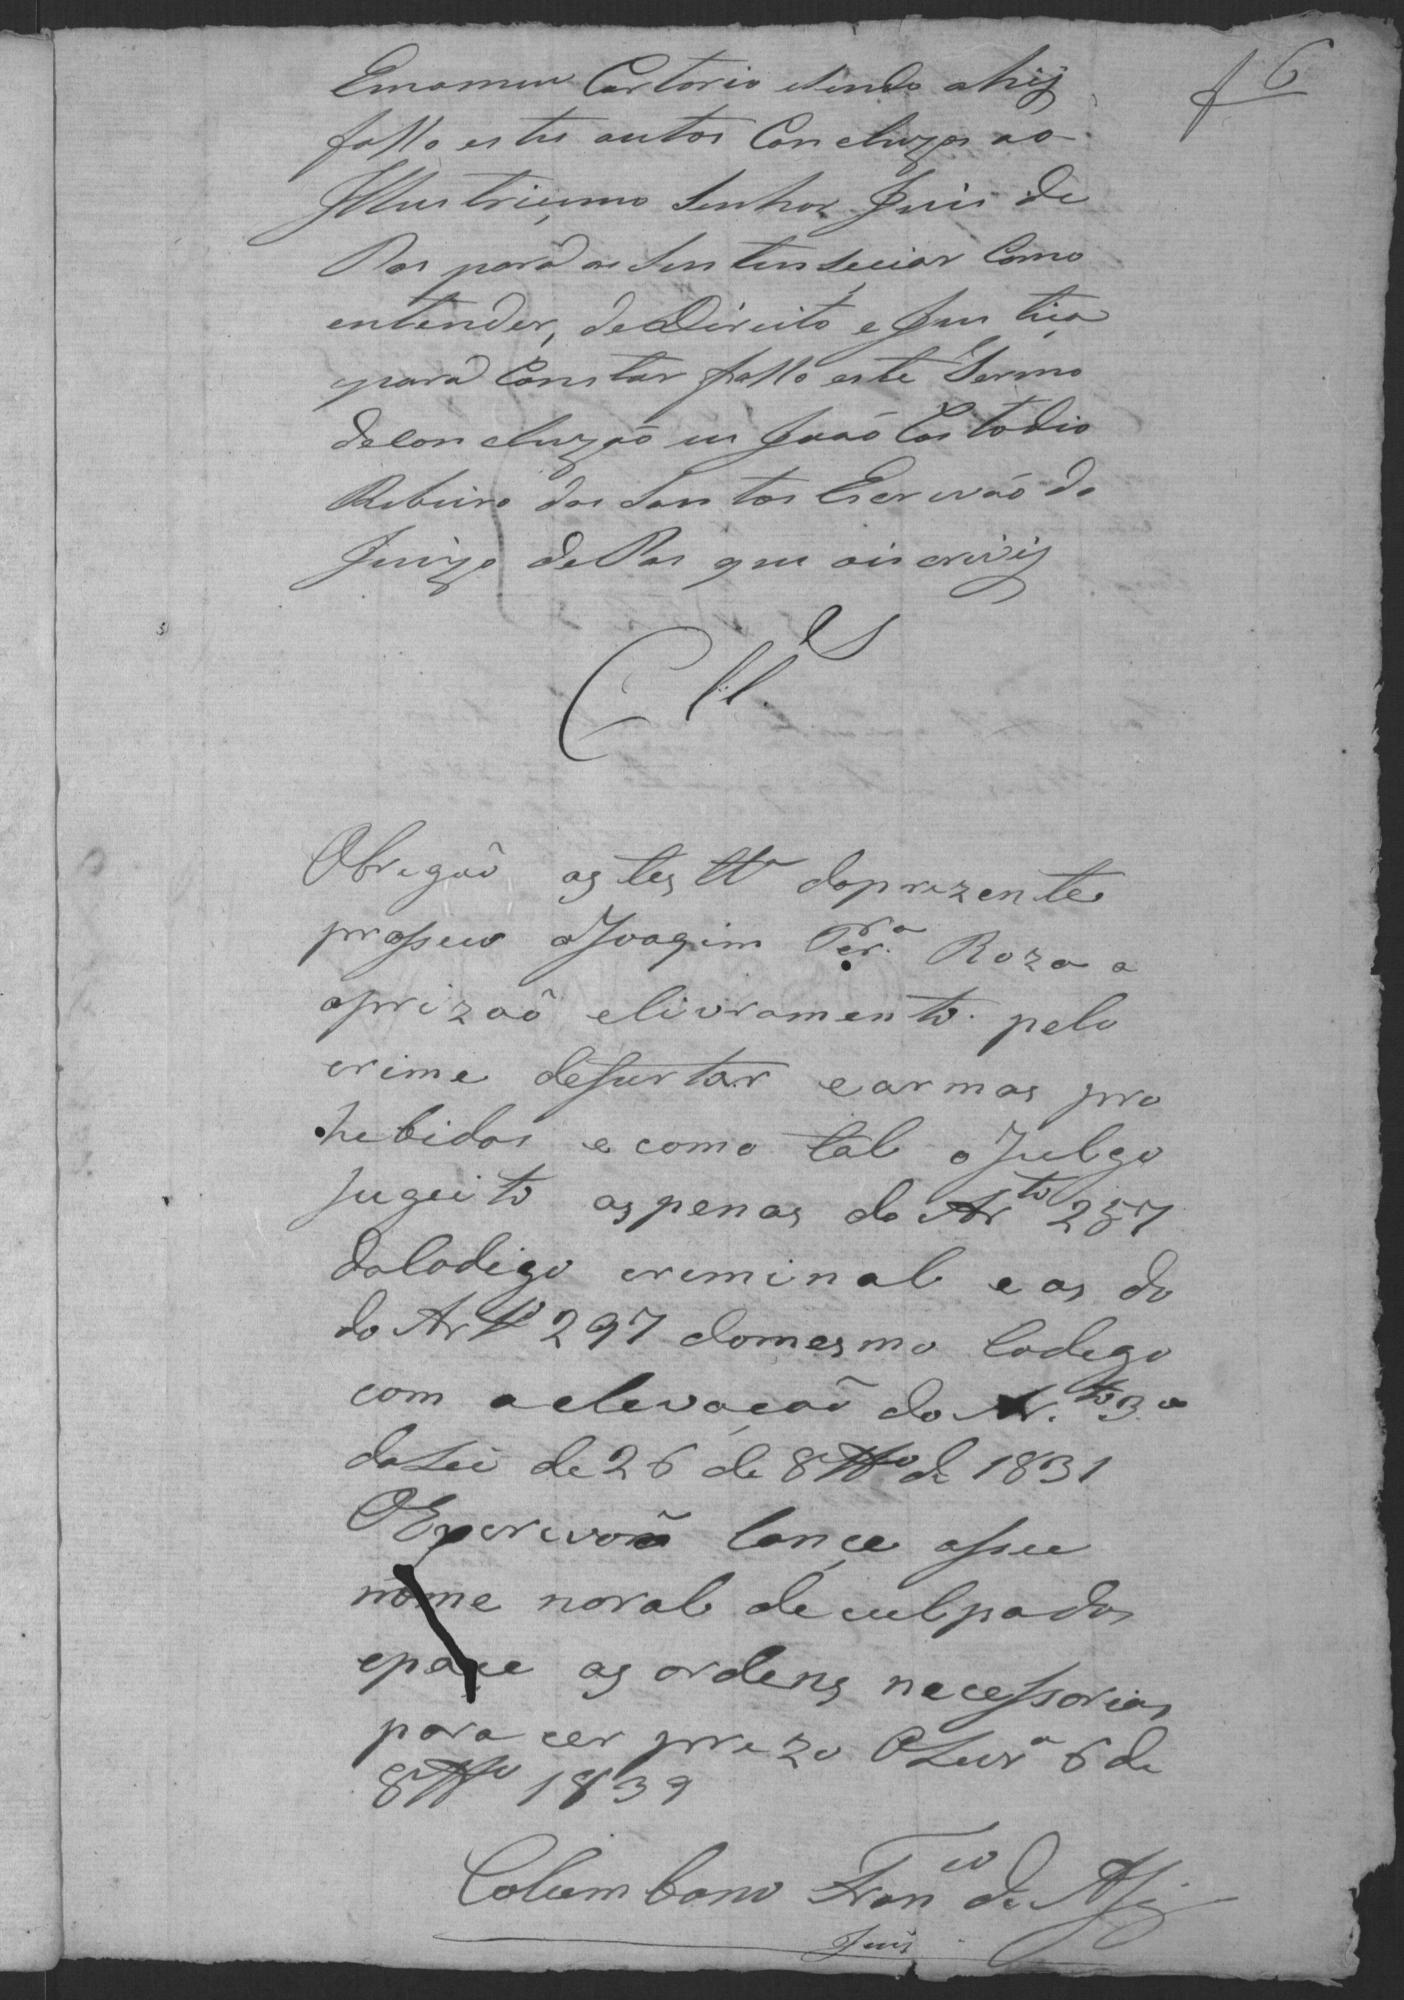 f 6
Emomeu Cartorio esendo ahiy
fasso estes autos Concluzos ao
Illustriçimo Senhor Juis de
Pas para os Sentenseciar Como
entender, de Direito e Justiça
para Constar fasso este Termo
deConcluzão eu João Custodio
Ribeiro dos Santos Escrivão do
Juizo de Pas que oiscriviy
Cll.os
Obrigaõ as testta doprezente
prosseco a Joaquim Per.ra Roza a
aprizaõ elivramento pelo
crime defurtar earmas pro
hebidas e como tal o Julgo
sugeito aspenas do Arto 257
doCodigo creminal e as do
do Arto 297 domesmo Codego
com aelevaçaõ do Ar.to 3.o
daLei de 26 de 8bro de 1831
OEscrivaõ lançe oseu
nome norol de culpados
epaçe as ordens necessarias
para cer prezo 6 de
8bro 1839
Columbano Franco de
Juis